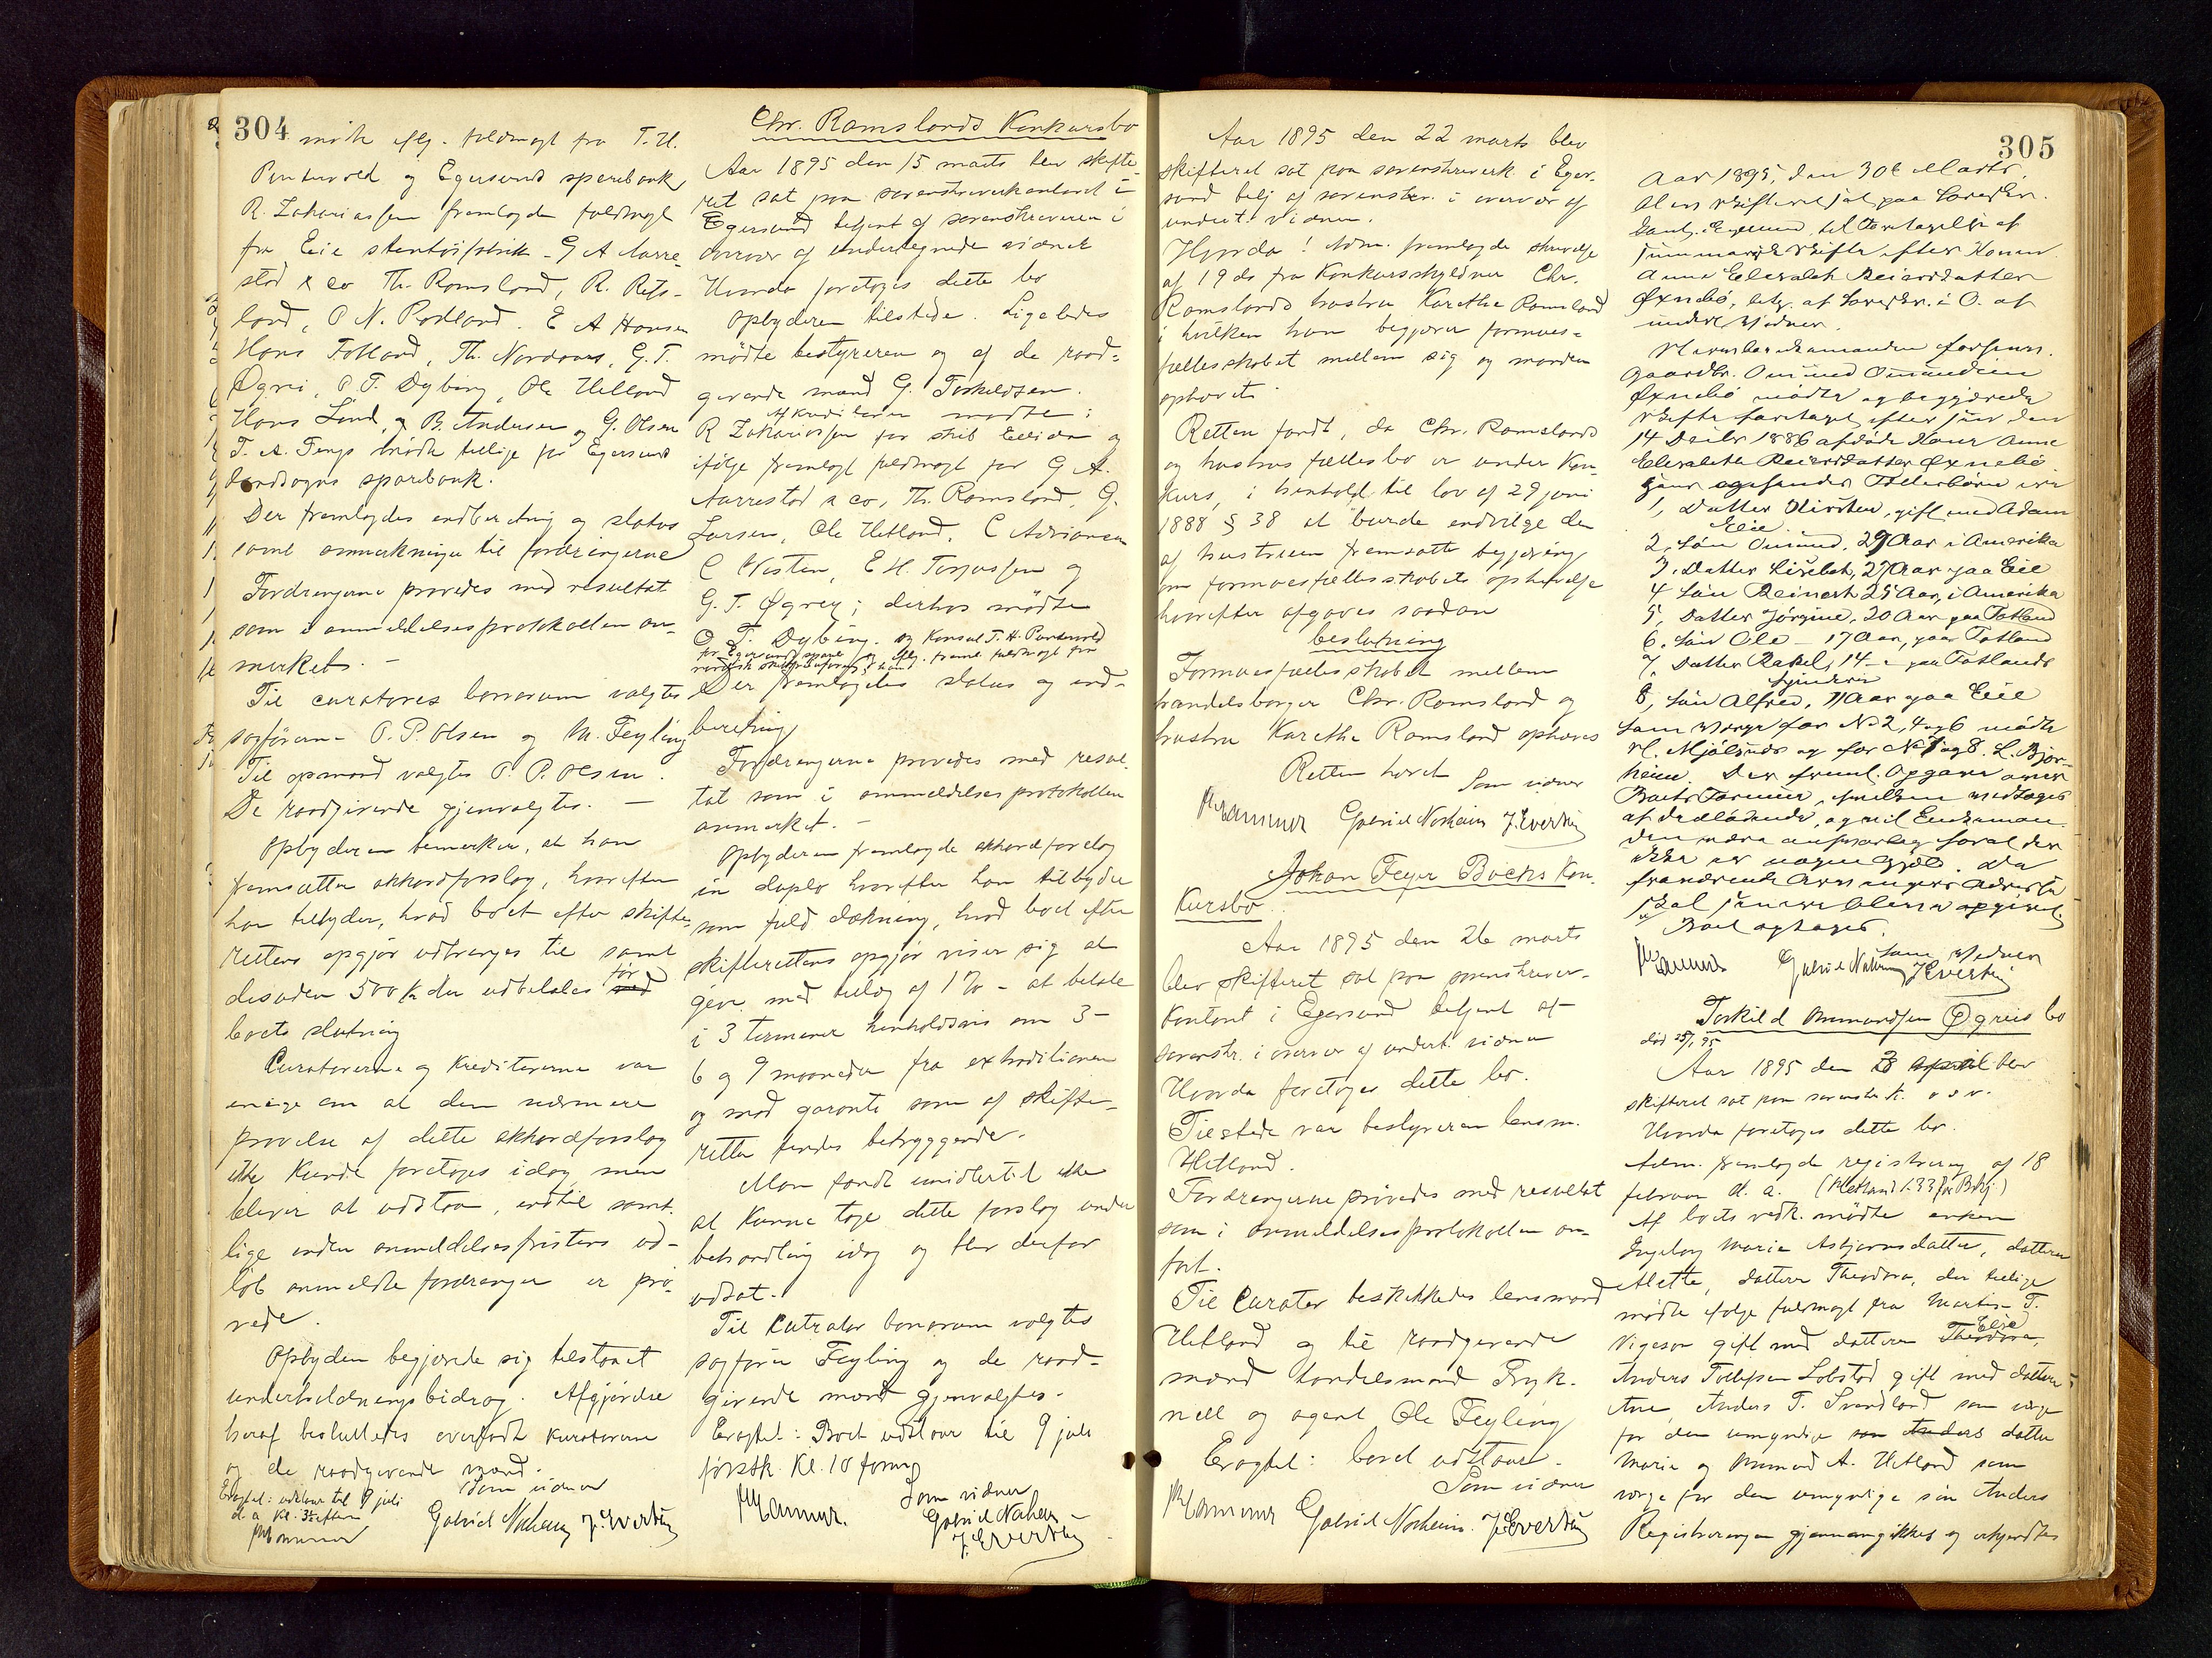 304
møtte eflg. fuldmagt fra T. H.
Puntervold og Egersunds sparebank
R. Zakariassen fremlagde fuldmagt
fra Eie stentøifabrik - G A Aarre-
stad & co Th. Ramsland, R. Refs-
land, O N. Rodland. E A Hansen
Hans Fotland, Th. Nordaas, G. T.
Øgrei, O. T. Dybing, Ole Hetland
Hans Lind, og B. Andersen og G. Olsen
T. A. Fengs mødte tillige for Egersunds
landsogns sparebank.
Der fremlagdes indberetning og status
samt anmerkninger til fordringerne
Fordringerne prøvedes med resultat
som i anmeldelsesprotokollen an-
merket. -
Til curatores bonorum valgtes
sagførerne O. P. Olsen og M. Feyling
Til opmand valgtes O. P. Olsen.
De raadgivende gjenvalgtes. -
Opbyderen bemerker, at han
fremsætter akkordforslag, hvorefter
han tilbyder, hvad boet efter skifte-
rettens opgjør udbringes til samt
desuden 500 kr der udbetales før
boets slutning
Curatorerne og Kreditorerne var
enige om at den nærmere
prøvelse af dette akkordforslag
ikke kunde foretages idag men
bliver at udstaa, indtil samt-
lige inden anmeldelsesfristens ud-
løb anmeldte fordringer er prø-
vede.
Opbyden begjærede sig tilstaaet
underholdningsbidrag. Afgjørelse
heraf besluttedes overladt kuratorerne
og de raadgivende mænd.
Eragtet: udstaar til 9 juli
d. a. Kl. 3½ efterm
Som vidner
Gabriel Nodheim J. Evertsen
Chr. Ramslands Konkursbo
Aar 1895 den 15 marts blev skifte-
ret sat paa sorenskriverkontoret i
Egersund betjent af sorenskriveren i
overvær af undertegnede vidner
Hvorda foretoges dette bo
Opbyderen tilstede. Ligeledes
mødte bestyreren og af de raad-
givende mænd G. Torkeldsen.
Af Kreditorer mødte:
R Zakariassen for skib Ellida og
ifølge fremlagt fuldmagt for G A.
Aarrestad & co, Th. Ramsland, G.
Larsen, Ole Hetland, C Adriansen
C Westen, E H. Torjussen og
G. T. Øgrey; derhos mødte
O T. Dybing. og Konsul T. H. Puntervold
for Egersunds spareb og eflg. freml fuldmagt fra
Der fremlagdes status og ind-
beretning
Fordringerne prøvedes med resul-
tat som i anmeldelsesprotokollen
anmerket. -
Opbyderen fremlagde akkordforslag
in duplo hvorefter han tilbyder
som fuld dækning, hvad boet efter
skifterettens opgjør viser sig at
give med tillæg af 1 % - at betale
i 3 terminer henholdsvis om 3 -
6 og 9 maaneder fra extraditionen
og mod garanti som af skifte-
retten findes betryggende.
Man fandt imidlertid ikke
at kunne tage dette forslag under
behandling idag og blev derfor
udsat.
Til Curator bonorum valgtes
sagfører Feyling og de raad-
givende mænd gjenvalgtes.
Eragtet: Boet udstaar til 9 juli
førstk. Kl. 10 formg
Som vidner
Gabriel Nodheim
J. Evertsen
305
Aar 1895 den 22 marts blev
skifteret sat paa sorenskriverk i Eger-
sund betj af sorenskr. i overvær af
undert. vidner.
Hvorda! Adm. fremlagde skrivelse
af 19 ds fra Konkursskyldner Chr.
Ramslands hustru Karethe Ramsland
i hvilken hun begjærer formues-
fællesskabet mellem sig og manden
ophævet.
Retten fandt, da Chr. Ramslands
og hustrus fællesbo er under Kon-
kurs, i henhold til lov af 29 juni
1888 § 38 at burde indvilge den
af hustruen fremsatte begjæring
om formuesfællesskabets ophævelse
hvorefter afgaves saadan
beslutning
Formuesfællesskabet mellem
handelsborger Chr. Ramsland og
hustru Karethe Ramsland ophæves
Retten hævet
Som vidner
Gabriel Nodheim J. Evertsen
Johan Feyer Boches Kon-
kursbo.
Aar 1895 den 26 marts
blev skifteret sat paa sorenskriver-
kontoret i Egersund betjent af
sorenskr. i overvær af undert. vidner
Hvorda foretoges dette bo.
Tilstede var bestyreren lensm.
Hetland.
Fordringerne prøvedes med resultat
som i anmeldelsesprotokollen an-
ført.
Til Curator beskikkedes lensmand
Hetland og til raadgivende
mænd handelsmand Fryk-
nell og agent Ole Feyling
Eragtet: boet udstaar.
Som vidner
Gabriel Nodheim. J. Evertsen
Aar 1895, den 30te Marts,
blev Skifteret sat paa Sorenskr.
kont. Egersund, til Foretagelse af
summarisk Skifte efter Kone
Anne Elisabeth Reiersdatter
Øxnebø, betj. af Sorenskr. i O. af
undert Vidner.
gaardbr. Omund Omundsen
Øxnebø mødte og begjærede
Skifte foretaget efter sin den
14 Decbr 1886 afdøde Kone Anne
Elisabeth Reiersdatter Øxnebø.
1, Datter Kirsten, gift med Adam
Eie.
2, Søn Omund, 29 Aar i Amerika
3. Datter Lisebet, 27 Aar paa Eie
4 Søn Reinert 25 Aar, i Amerika
5, Datter Jørgine, 20 Aar paa Fotland
6, Søn Ole - 17 Aar, paa Fotland
7, Datter Rakel, 14 - paa Fotlands
Spinderi
8, Søn Alfred, 11 Aar paa Eie
Som Værge for No 2, 4 og 6 mødte
N. Mjølsnes og for No 7 og 8. L. Bjor-
heim. Der freml. Opgave over
Boets Formue, hvilken medtages
skal senere blive opgivet.
Boet optages.
Som Vidner
Gabriel Nodheim J. Evertsen
Torkild Aamundsen Øgreis bo
død 25/1 95
Aar 1895 den 3 april blev
skifteret sat paa sorenskr. k. o s v.
Hvorda foretoges dette bo.
Adm. fremlagde registrering af 18
februar d. a. (Hetland 1.33 for Bskj.)
Af boets vedk. mødte enken
Ingeborg Marie Asbjørnsdatter, datteren
Mette, datteren Theodora, der tillige
mødte ifølge fuldmagt fra Martin T.
Vigesaa gift med datteren Elie
Anders Tollefsen Lobstad gift med datteren
Ane, Anders T. Svendland som værge
for den umyndige datter
Marie og Aamund A. Hetland som
værge for den umyndige søn Anders
Registreringen gjennemgikkes og erkjendtes